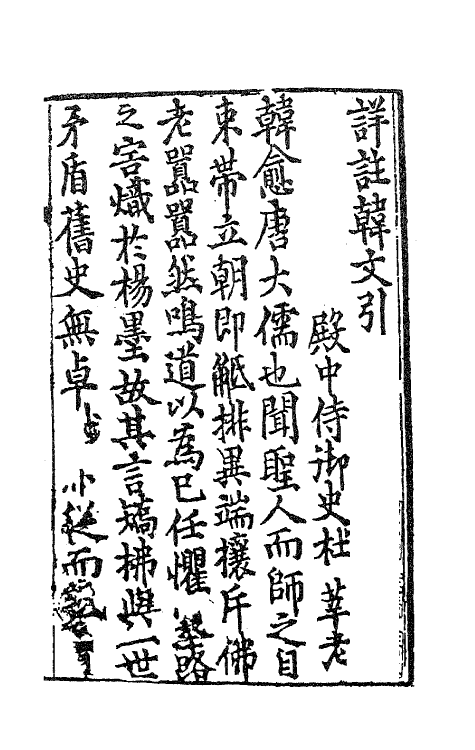 詳註韓文引
殿中侍御史杜莘老
韓愈唐大儒也聞聖人而師之自
束帶立朝即觝排異端攘斥佛
老嚚嚚然鳴道以為已任懼
之害熾於楊墨故其言矯拂與一世
矛盾舊史無卓
從而